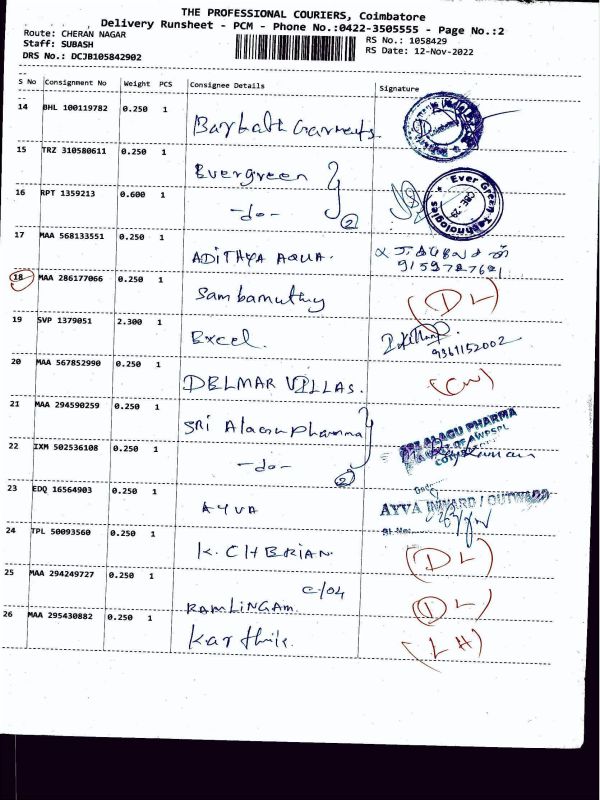 THE PROFESSIONAL COURIERS, Coimbatore
Delivery Runsheet - PCM - Phone No.:0422-3505555 - Page No.:2
Route: CHERAN NAGAR
RS No.: 1058429
Staff: SUBASH
RS Date: 12-Nov-2022
DRS No.: DCJB105842902
S No Consignment No Weight PCS Consignee Details Signature
14 BHL 100119782 0.250 1 Garments
15 TRZ 310580611 0.250 1 Evergreen
Ever Green Tehnologies
16 RPT 1359213 0.600 1 -do- 2
17 MAA 568133551 0.250 1 ADITHYA AQUA.
9159787621
18 MAA 286177066 0.250 1 Sambamuthy (DL)
19 SVP 1379051 2.300 1 Excel.
9361152002
20 MAA 567852990 0.250 1 DELMAR VILLAS.
21 MAA 294590259 0.250 1 SRI Alagu pharma
SRI ALAGU PHARMA
22 IXM 502536108 0.250 1 -do- 2
23 EDQ 16564903 0.250 1 AYVA
AYVA INWARD / OUTWARD
24 TPL 50093560 0.250 1 K. (DL)
25 MAA 294249727 0.250 1 C/04
RAMLINGAM. (DL)
26 MAA 295430882 0.250 1 Karthik. (LH)